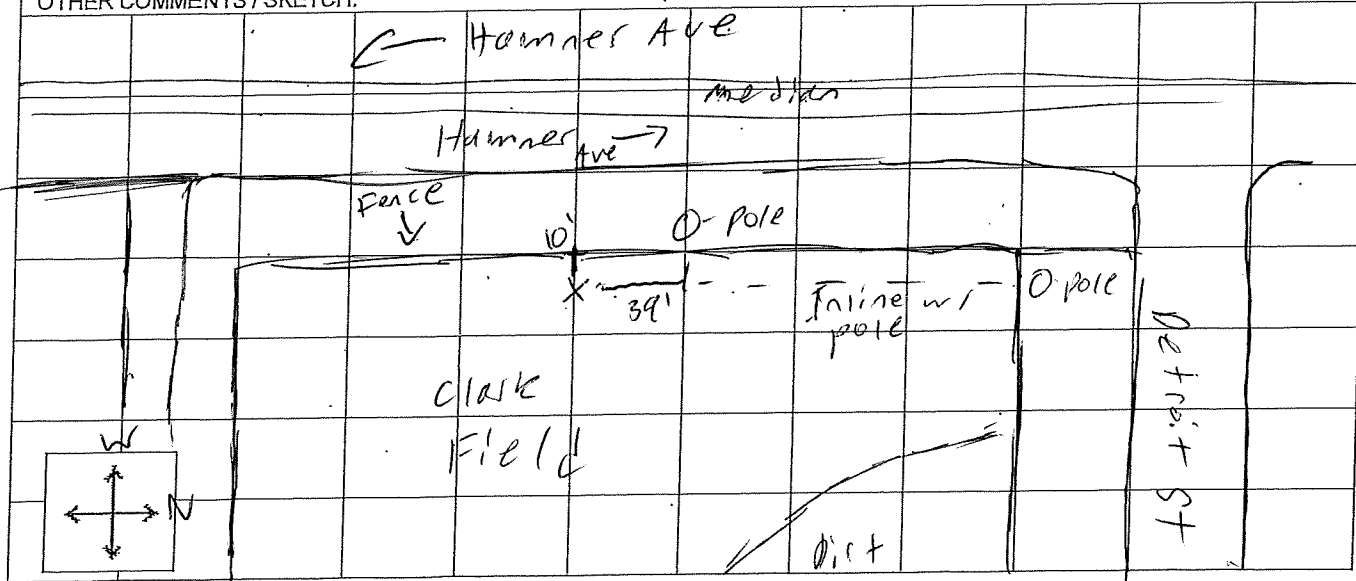 OTHER COMMENTS / SKETCH:
← Hamner Ave
median
Hamner Ave →
Fence
10'
O-pole
X
39'
Inline w/
pole
O pole
Detroit St
Clark
Field
Dirt
W
N